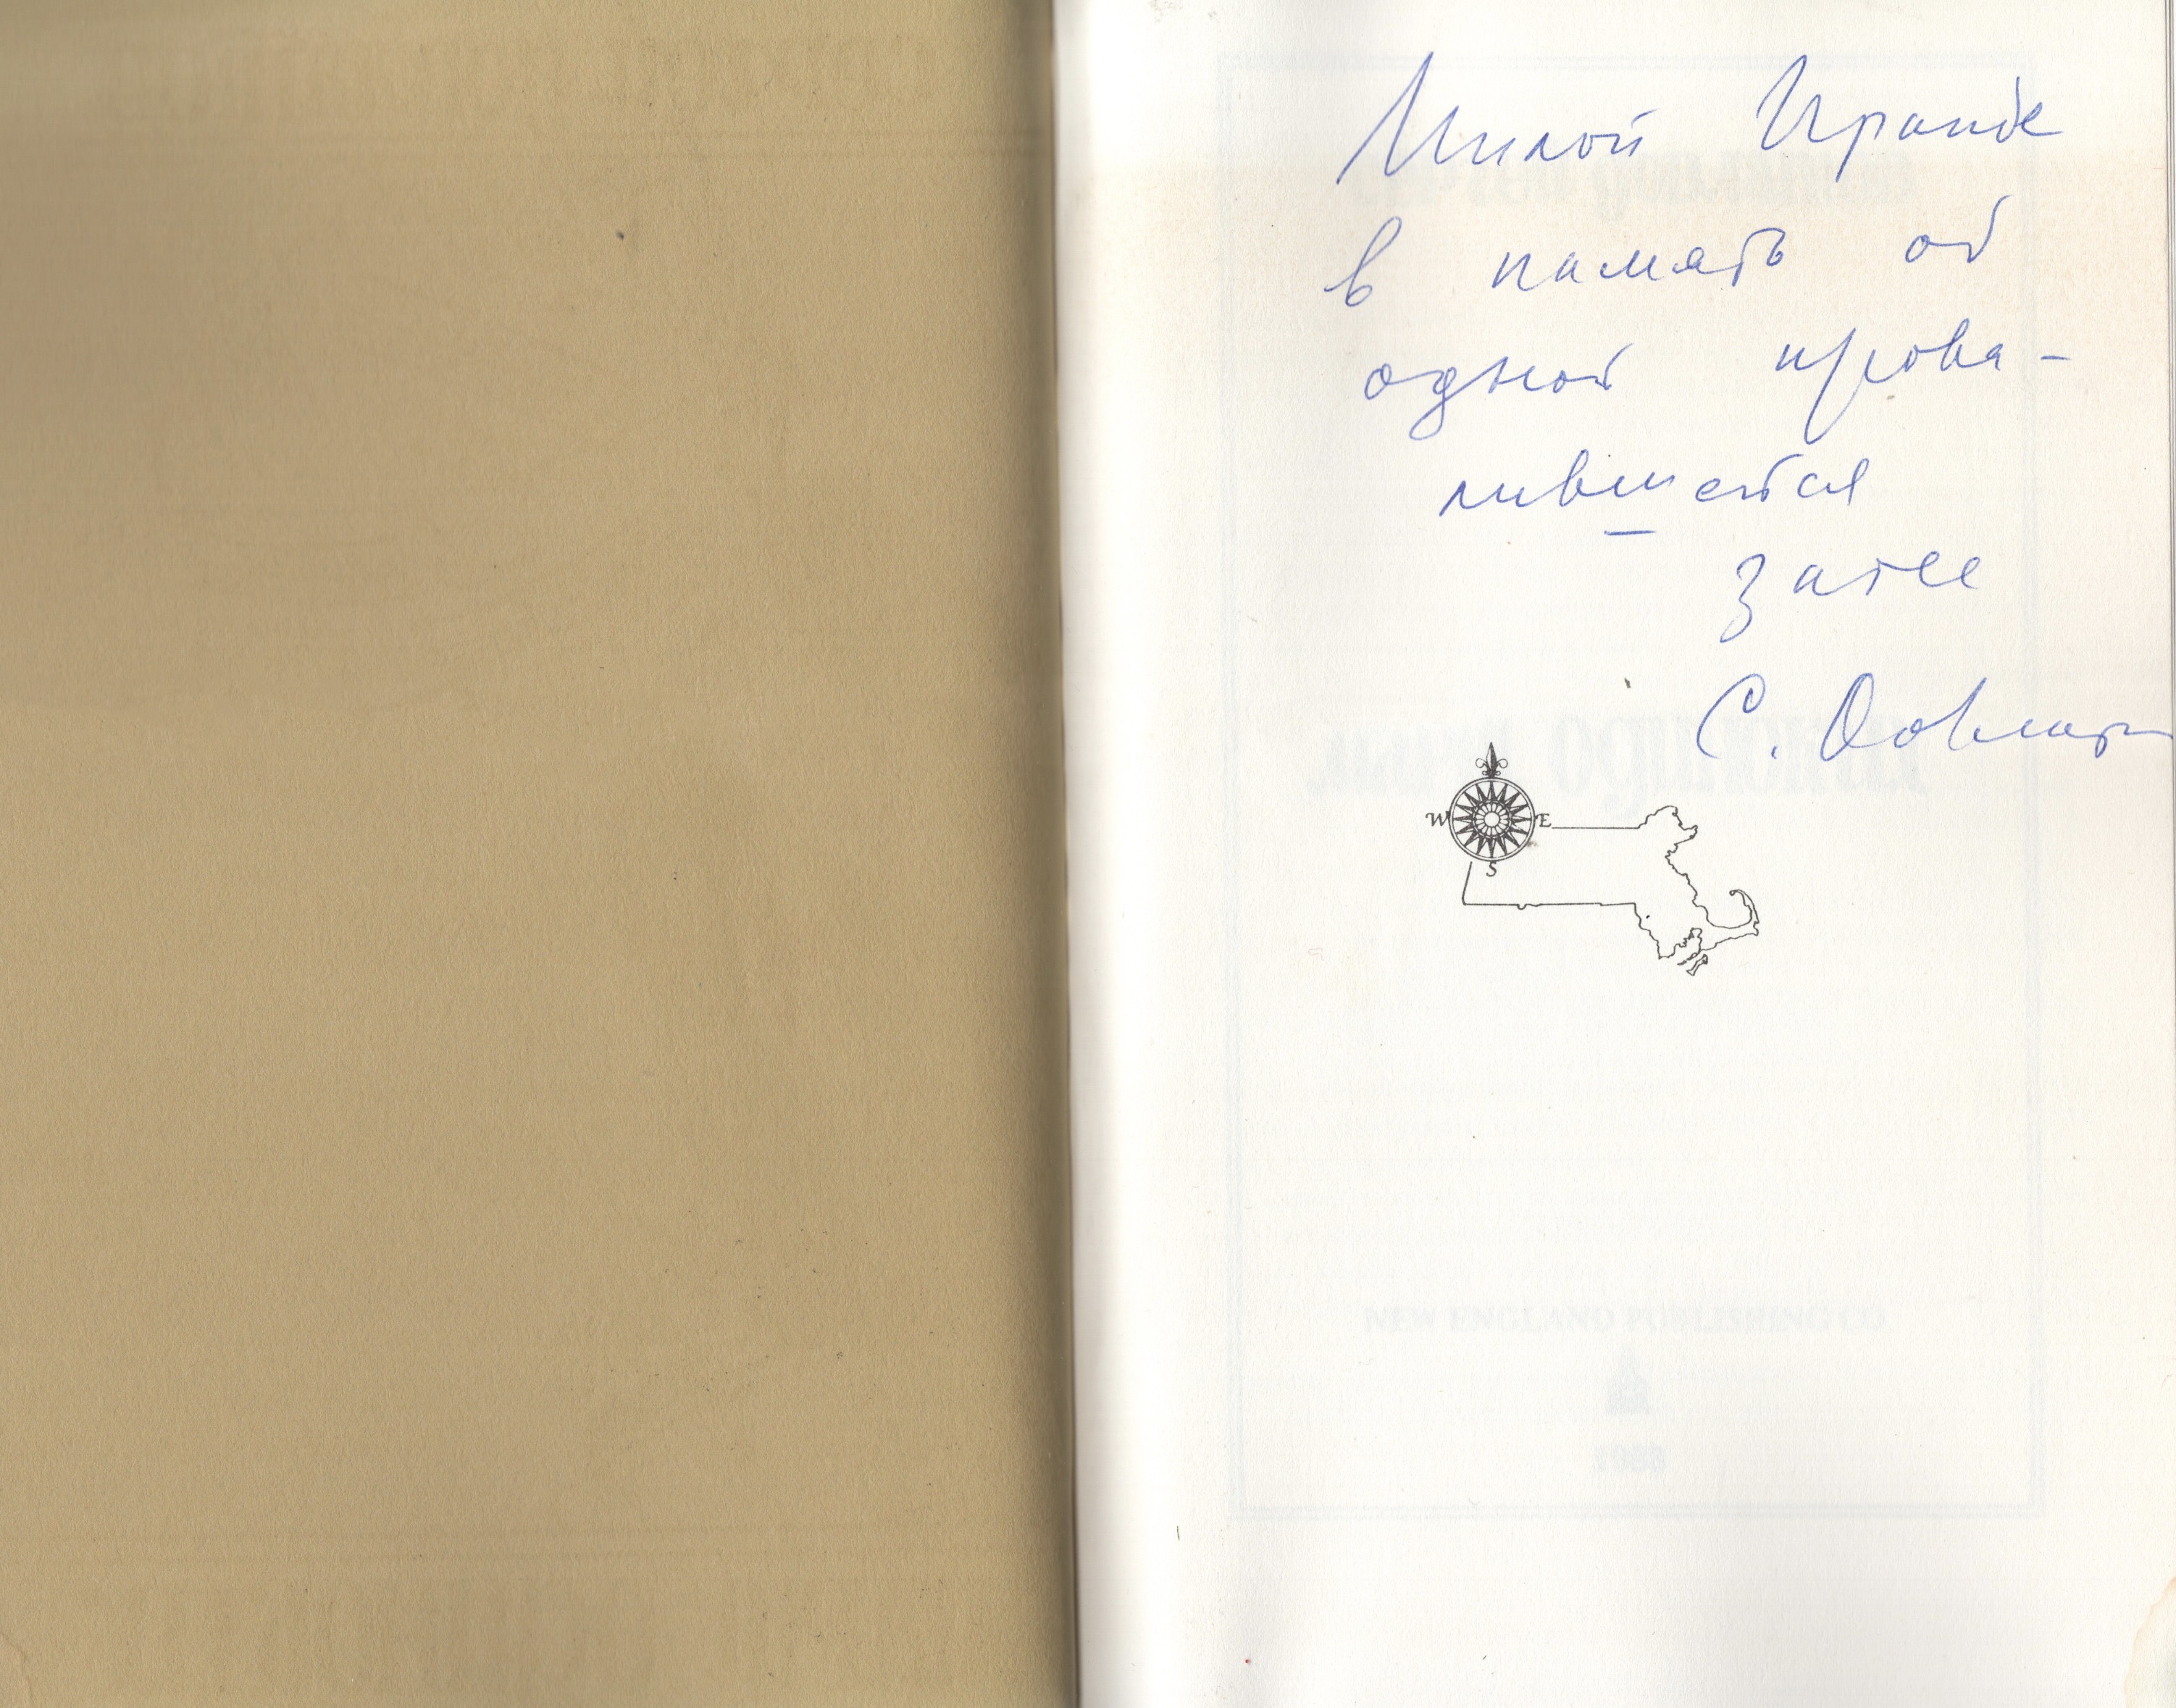 Милой Ираиде
в память об
одной прова-
лившейся
затее
С. Довлат
W E
S
NEW ENGLAND PUBLISHING CO